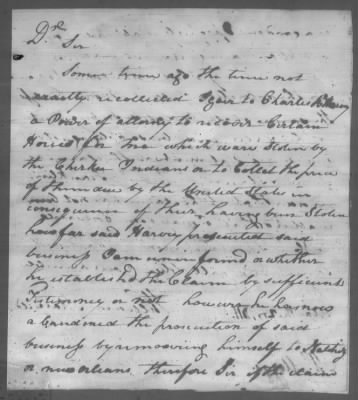 Dr. Sir
Some time ago the time not
exactly recollected I gave to Charles Harvey
a Power of attorny to recover Certain
Horses for me which ware Stolen by
the Cherkee Indians or to Collect the price
of them due by the United States in
consequence of their having bin Stolen
how far said Harvey prosecuted said
business I am never found or whether
he established the Claim by sufficient
Testimony or not however he has now
abandned the prosecution of said
business by removeing himself to
or therefore Sir if the claim